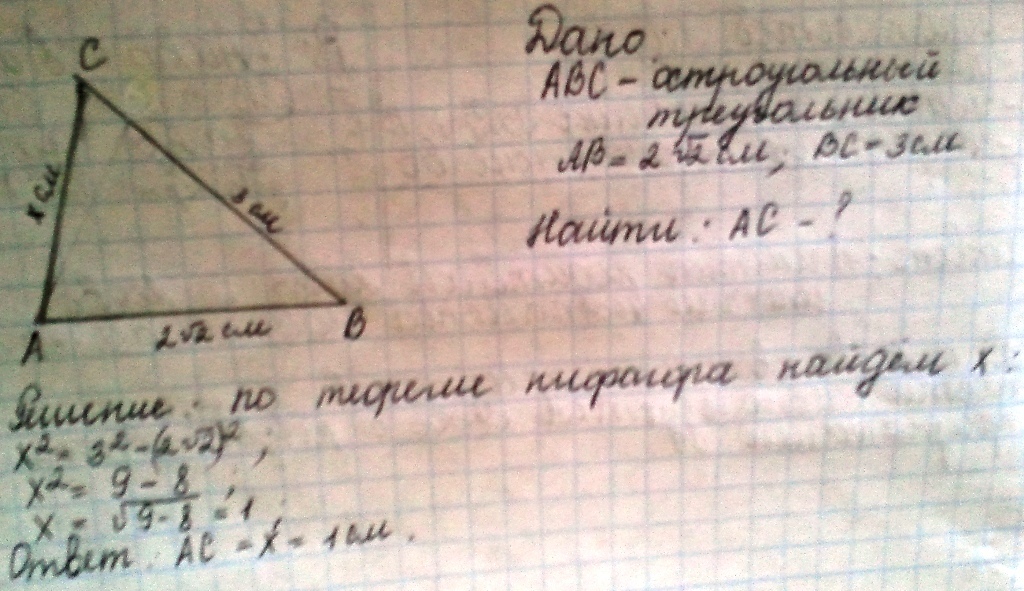 Дано:
ABC - остроугольный
треугольник
AB = 2√2 см, BC = 3 см
Найти: AC - ?
A
x см
C
3 см
2√2 см
B
Решение: по теореме пифагора найдём x:
x² = 3² - (2√2)²;
x² = 9 - 8;
x = √9-8 = 1;
Ответ: AC = x = 1 см.